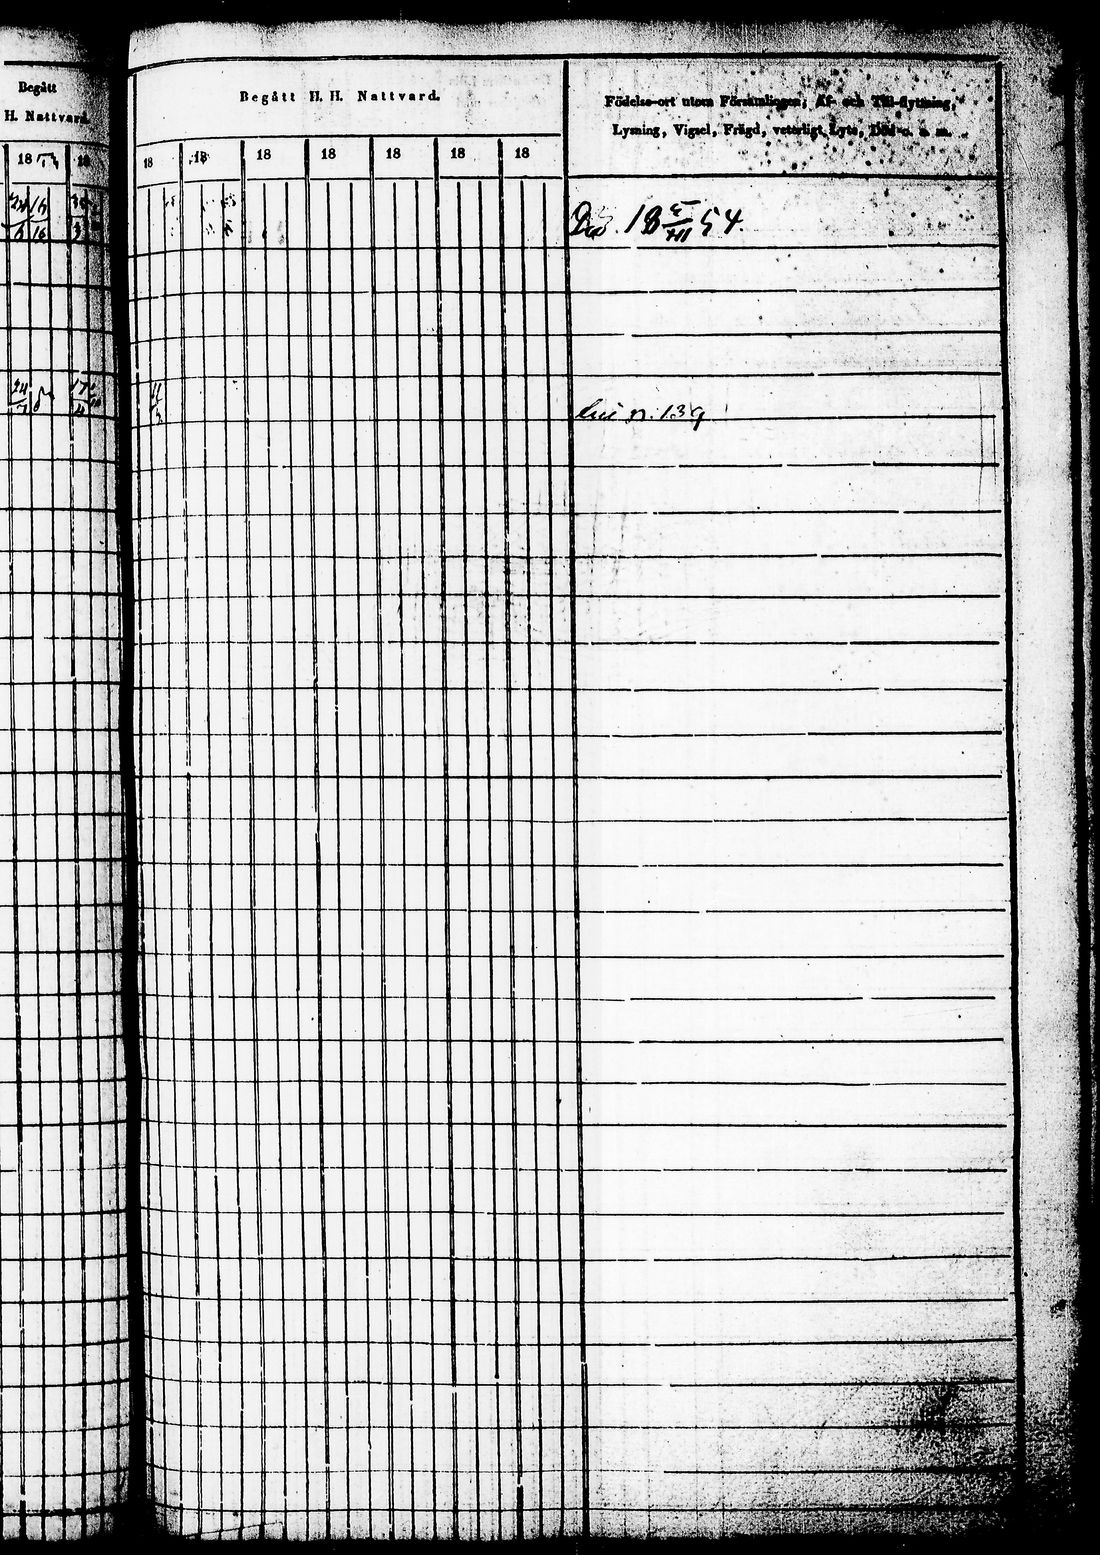 Begått
H. Nattvard.
18 53 18
24 16
6 16
24
7
17
4
Begått H. H. Nattvard.
18 18 18 18 18 18 18
11
3
Födelse-ort utom Församlingen, Af- och Till-flyttning,
Lysning, Vigsel, Frägd, veterligt Lyte, Död o. s. m.
18 5/VII 54.
n. 139